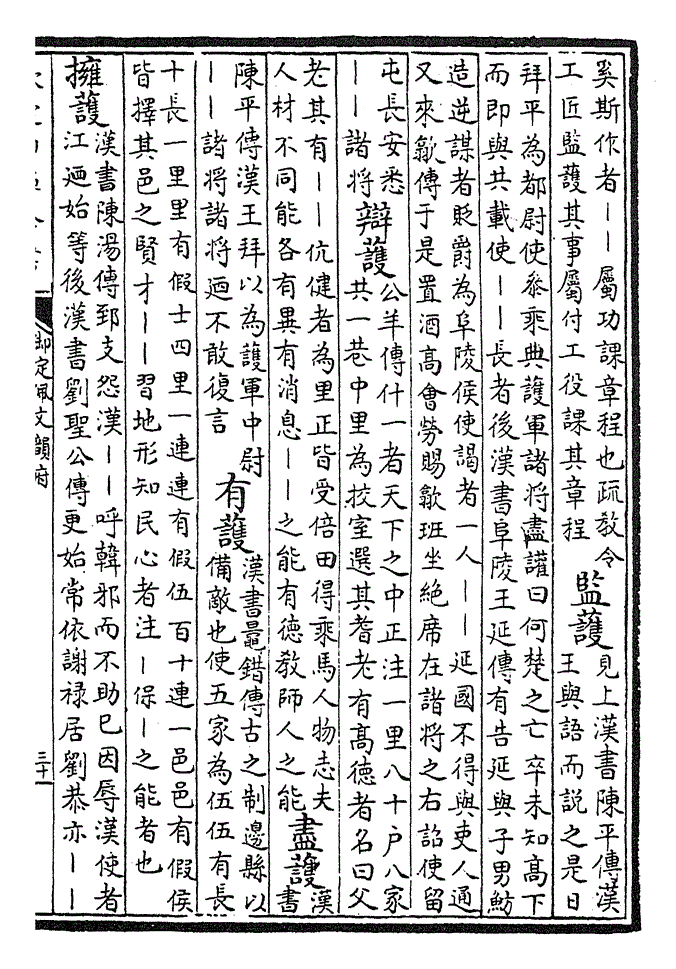 奚斯作者——屬功課章程也疏教令
工匠監護其事屬付工役課其章程
監護
見上漢書陳平傳漢
王與語而説之是日
拜平為都尉使叅乘典護軍諸將盡讙曰何楚之亡卒未知髙下
而即與共載使——長者後漢書阜陵王延傳有告延與子男魴
造逆謀者貶爵為阜陵侯使謁者一人——延國不得與吏人通
又來歙傳于是置酒髙會勞賜歙班坐絶席在諸將之右詔使留
屯長安悉
——諸將
辯護
公羊傳什一者天下之中正注一里八十户八家
共一巷中里為校室選其耆老有髙德者名曰父
老其有——伉健者為里正皆受倍田得乘馬人物志夫
人材不同能各有異有消息——之能有德教師人之能
盡護
漢
書
陳平傳漢王拜以為護軍中尉
——諸將諸將廼不敢復言
有護
漢書鼂錯傳古之制邊縣以
備敵也使五家為伍伍有長
十長一里里有假士四里一連連有假伍百十連一邑邑有假侯
皆擇其邑之賢才——習地形知民心者注—保—之能者也
擁護
漢書陳湯傳郅支怨漢——呼韓邪而不助已因辱漢使者
江廼始等後漢書劉聖公傳更始常依謝禄居劉恭亦——
御定佩文韻府
三十